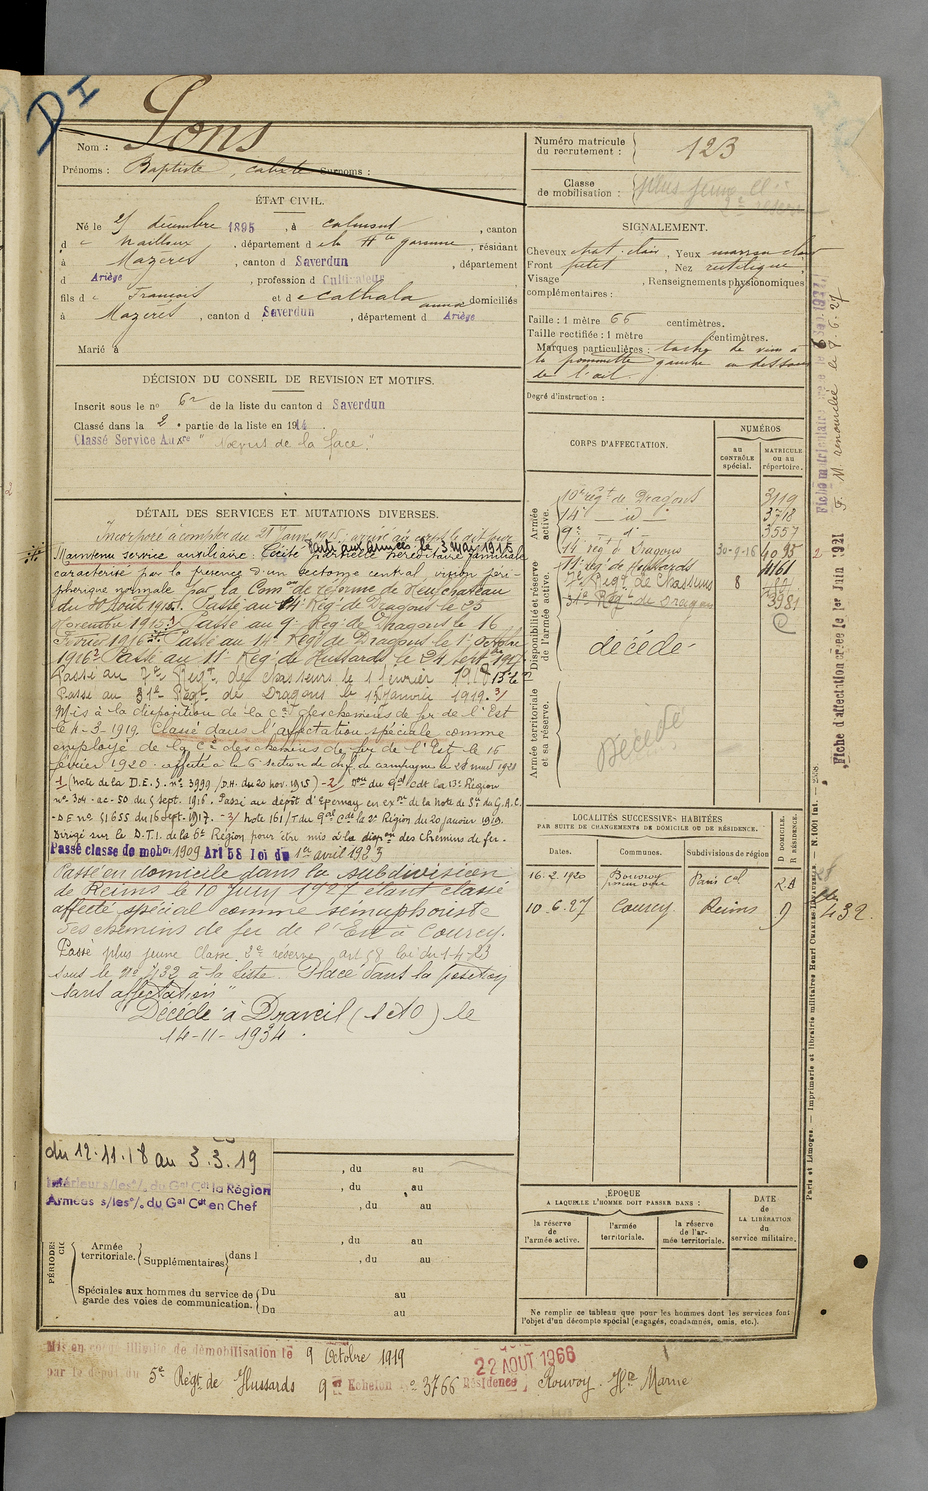 DI
Pons
Nom :
Prénoms : Baptiste, Surnoms :
ÉTAT CIVIL.
Né le 25 décembre 1895, à Calmont, canton
d e Nailloux, département d e la Hte Garonne, résidant
à Mazères, canton d Saverdun, département
d Ariège, profession d Cultivateur
fils d e François et d e Cathala Anna domiciliés
à Mazères, canton d Saverdun, département d Ariège
Marié à
DÉCISION DU CONSEIL DE REVISION ET MOTIFS.
Inscrit sous le no 62 de la liste du canton d Saverdun
Classé dans la 2e partie de la liste en 1914.
Classé Service Auxre "Nævus de la face".
DÉTAIL DES SERVICES ET MUTATIONS DIVERSES.
Incorporé à compter du
Parti aux armées le 3 Mai 1915
Maintenu service auxiliaire. Cécité partielle héréditaire familiale
caractérisé par la présence d'un scotome central, vision péri-
phérique normale par la Comon de réforme de Neufchateau
du août 1915. Passé au 14e Rég. de Dragons le 25
Novembre 1915. Passé au 9e Rég. de Dragons le 16
Février 1916. Passé au 14e Régt de Dragons le 1er Octobre
1916. Passé au 11e Rég. de Hussards le 24 sept. 1917
Passé au 7e Regt. des chasseurs le 1 février 1918
Passé au 31e Régt. de Dragons le 15 Janvier 1919. 3/
Mis à la disposition de la Cie des chemins de fer de l'Est
le 4-3-1919. Classé dans l'affectation spéciale comme
employé de la Cie des chemins de fer de l'Est le 16
février 1920. affecté à la 6e section de ch. de campagne le 28 mars 1920
1 (Note de la D.E.S. no 3999 (D.M. du 20 nov. 1915) -2/ On du Gal Cdt la 13e Région
no 304-ac-50 du 5 sept. 1916. Passé au dépôt d'Epernay en exon de la note de Sce du G.A.C.
-DE no 51655 du 16 sept. 1917. -3/ Note 161/T du Gal Cdt la 2e Région du 20 janvier 1919.
Dirigé sur le D.T.I. de la 6e Région pour être mis à la dispon des chemins de fer.
Passé classe de mobon 1909 Art 58 loi du 1er avril 1923
Passé en domicile dans la subdivision
de Reims le 10 Juin 1927 étant classé
affecté spécial comme sémaphoriste
des chemins de fer de l'Est à Courcy.
Passé plus jeune classe 2e réserve art 58 loi du 1-4-23
sous le no 432 à la liste. Placé dans la position
"sans affectation"
Décédé à Draveil (S et O) le
14-11-1934.
du 12.11.18 au 3.3.19
Intérieur s/les o/. du Gal Cdt la Région
Armées s/les o/. du Gal Cdt en Chef
, du au
, du au
, du au
, du au
Armée territoriale. Supplémentaires dans l , du au
Spéciales aux hommes du service de garde des voies de communication. Du au
Du au
Mis en congé illimité de démobilisation le 9 Octobre 1919
par le dépôt du 5e Régt. de Hussards 9e Echelon No 3766 Résidence Rouvroy. Hte Marne
22 AOUT 1966
Numéro matricule du recrutement : 123
Classe de mobilisation : plus jeune cl. 2e réserve
SIGNALEMENT.
Cheveux chat. clair, Yeux marron clair
Front petit, Nez rectiligne,
Visage , Renseignements physionomiques
complémentaires :
Taille : 1 mètre 66 centimètres.
Taille rectifiée : 1 mètre centimètres.
Marques particulières : tache de vin à
la pommette gauche au dessous
de l'œil.
Degré d'instruction :
CORPS D'AFFECTATION.
NUMÉROS
au CONTRÔLE spécial.
MATRICULE ou au répertoire.
Armée active.
10e régt de Dragons 3119
14e — id — 3718
9e d° 3557
14e régt de Dragons 30-9-16 4095
Disponibilité et réserve de l'armée active.
11e rég de Hussards 4161
7e Régt. de Chasseurs 8
31e Régt de Dragons 3981
décédé
Armée territoriale et sa réserve.
Décédé
LOCALITÉS SUCCESSIVES HABITÉES
PAR SUITE DE CHANGEMENTS DE DOMICILE OU DE RÉSIDENCE.
Dates. Communes. Subdivisions de région D DOMICILE. R RÉSIDENCE.
16-2-1920 Paris Cal
10.6.27 Courcy. Reims D 432.
ÉPOQUE
A LAQUELLE L'HOMME DOIT PASSER DANS :
la réserve de l'armée active.
l'armée territoriale.
la réserve de l'armée territoriale.
DATE de LA LIBÉRATION du service militaire.
Ne remplir ce tableau que pour les hommes dont les services font
l'objet d'un décompte spécial (engagés, condamnés, omis, etc.).
Fiche d'affectation créée le 1er Juin 1921
F. M. renouvelée le 8.6.27
Paris et Limoges. — Imprimerie et librairie militaires Henri CHARLES-LAVAUZELLE — N. 1001 int. — 2558.